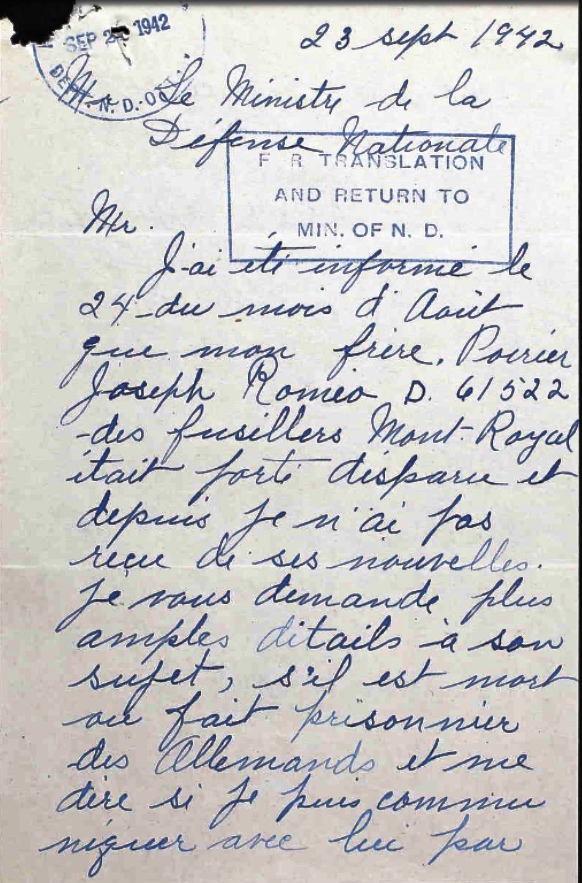 23 sept 1942
SEP 2 1942
DEPT. N.D.
M. Le Ministre de la
Défense Nationale
F R TRANSLATION
AND RETURN TO
MIN. OF N. D.
Mr.
J'ai été informé le
24 du mois d'Août
que mon frère, Poirier
Joseph Roméo D. 61522
-des fusillers Mont-Royal
était porté disparu et
depuis je n'ai pas
recu de ses nouvelles.
Je vous demande plus
amples ditails à son
sujet, s'il est mort
ou fait prisonnier
des Allemands et me
dire si je puis commu
niquer avec lui par